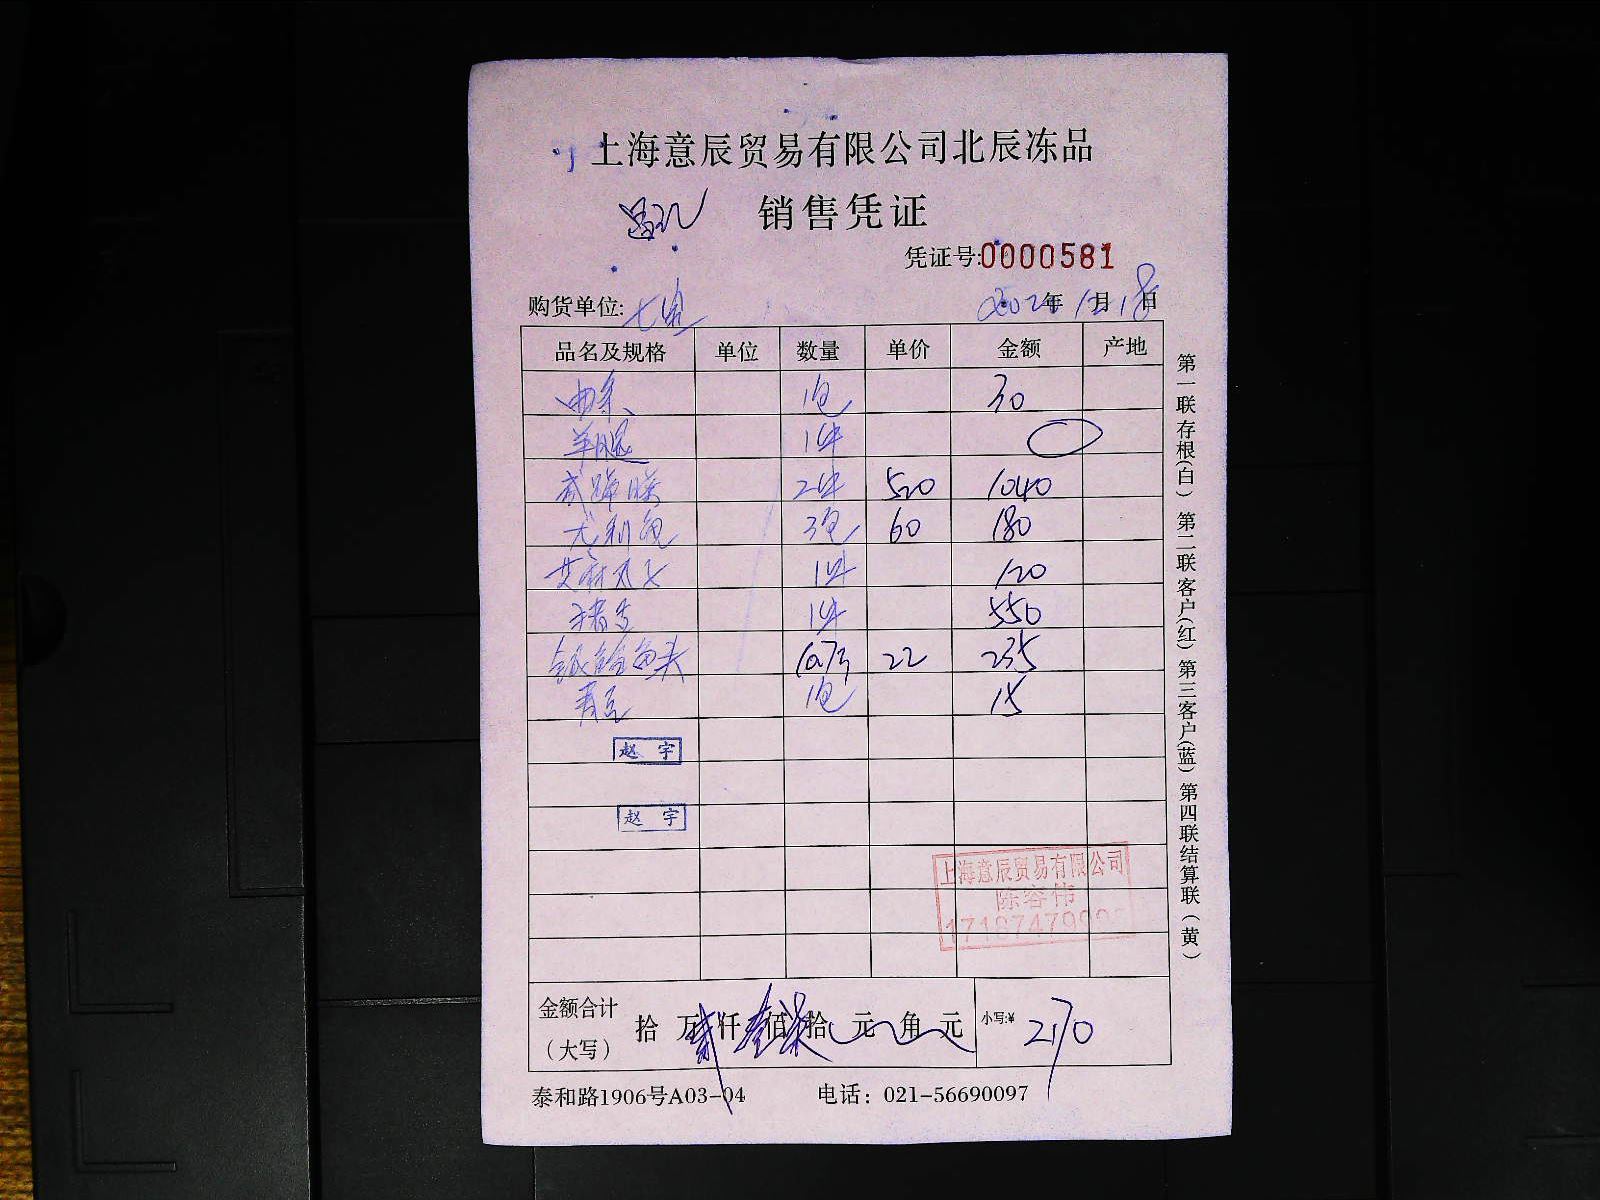 上海意辰贸易有限公司北辰冻品
销售凭证
凭证号:0000581
购货单位: 年12月18日
品名及规格 单位 数量 单价 金额 产地
1包 30
羊腿 1件
2件 520 1040
3包 60 180
1件 120
1件 550
鱼头 10.7斤 22 235
青豆 1包 15
赵宇
赵宇
上海意辰贸易有限公司
陈容伟
金额合计
(大写)
拾万贰仟壹佰柒拾元角元 小写:¥ 2170
泰和路1906号A03-04 电话: 021-56690097
第一联存根(白) 第二联客户(红) 第三客户(蓝) 第四联结算联(黄)